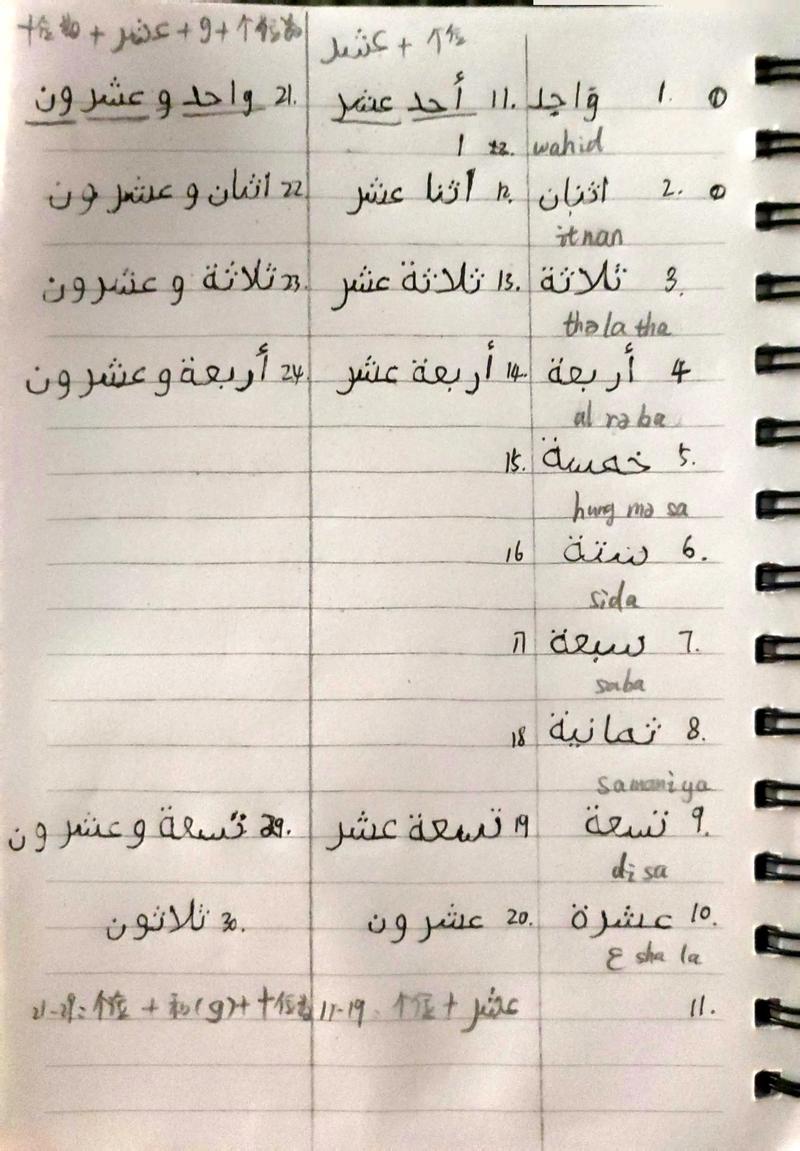 عشر + 个位
1. واحد 11. أحد عشر 21. واحد و عشرون
wahid
2. اثنان 12. اثنا عشر 22 اثنان و عشرون
itnan
3. ثلاثة 13. ثلاثة عشر 23. ثلاثة و عشرون
thalatha
4 أربعة 14. أربعة عشر 24. أربعة و عشرون
al raba
5. خمسة 15.
hung ma sa
6. ستة 16
sida
7. سبعة 17
saba
8. ثمانية 18
Samaniya
9. تسعة 19 تسعة عشر 29. تسعة و عشرون
di sa
10. عشرة 20. عشرون 30. ثلاثون
sha la
11. 11-19: 个位 + عشر 21-29: 个位 + 和(و) + 十位